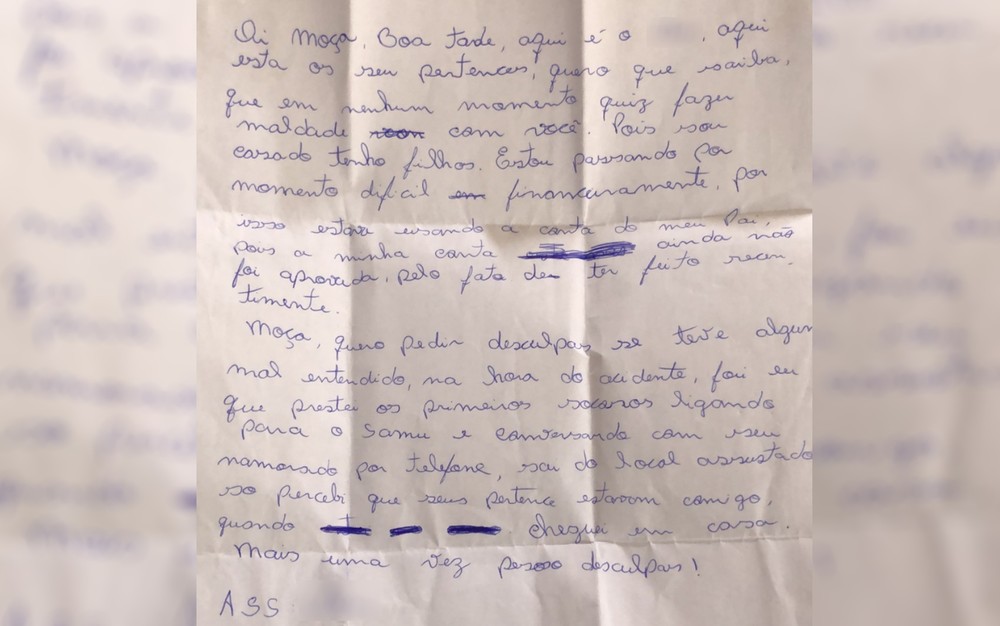 Oi moça, Boa tarde, aqui é o , aqui
esta os seu pertences, quero que saiba,
que em nenhum momento quiz fazer
maldade com você. Pois sou
casado tenho filhos. Estou passando por
momento dificil financeiramente, por
isso estava usando a conta do meu Pai,
pois a minha conta ainda não
foi aprovada, pelo fato de ter feito recen.
timente.
Moça, quero pedir desculpas se teve algum
mal entendido, na hora do acidente, foi eu
que prestei os primeiros socoros ligando
para o Samu e conversando com seu
namorado por telefone, sai do local assustado
so percebi que seus pertence estavam comigo,
quando cheguei em casa.
Mais uma vez pesoso desculpas!
ASS